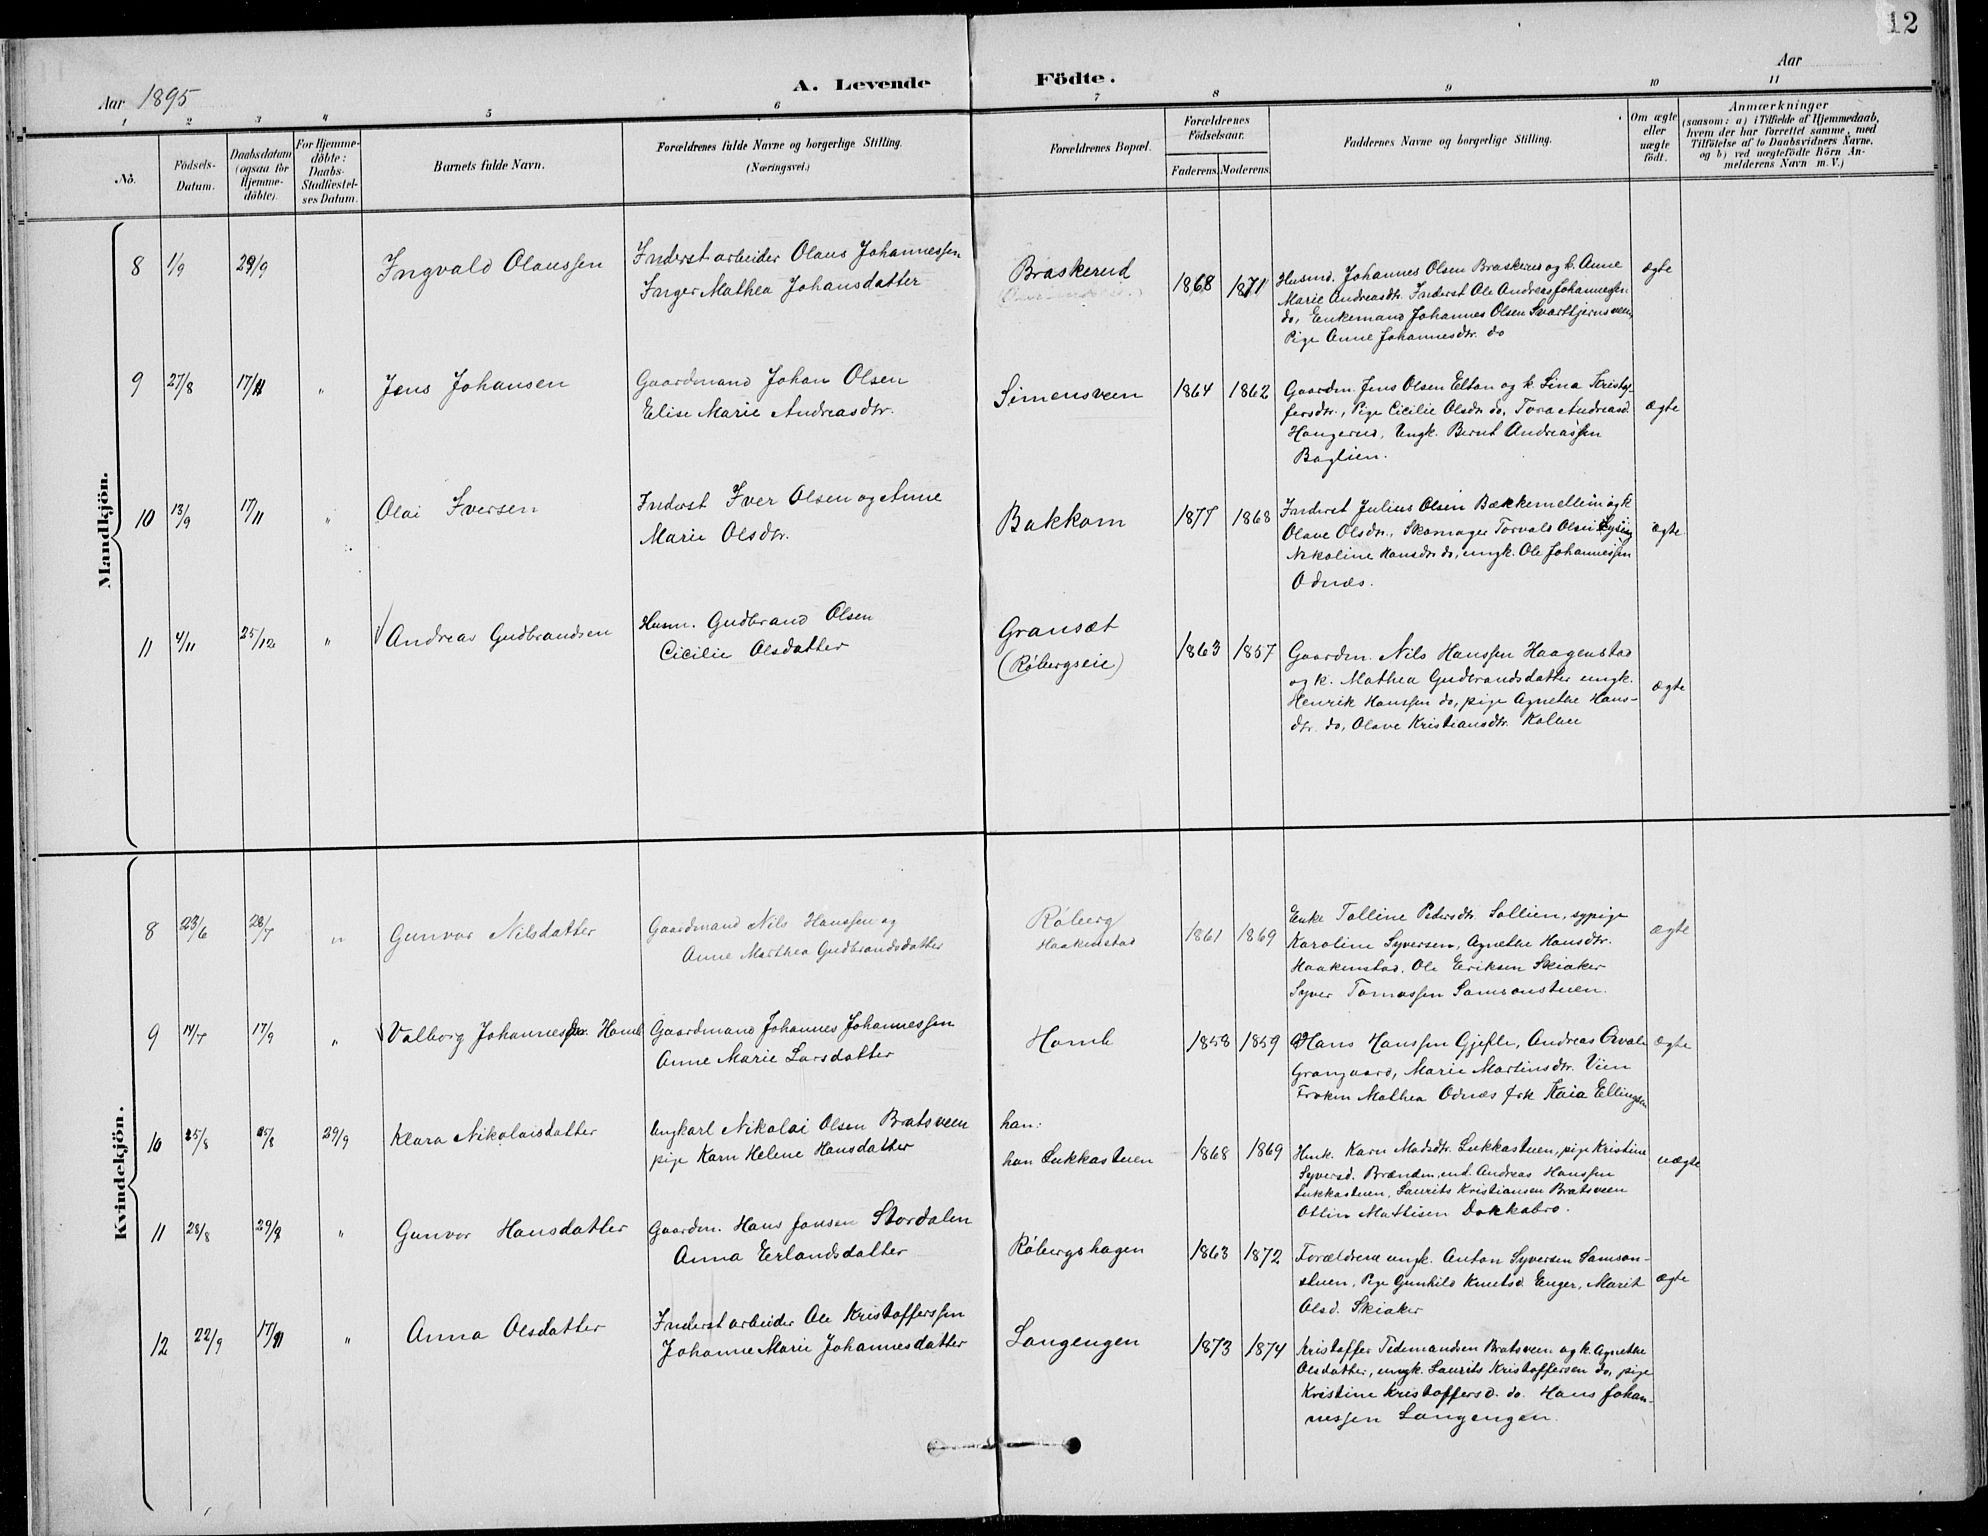 12
Aar 1895
A. Levende Födte.
Aar
1 2 3 4 5 6 7 8 9 10 11
No.
Födsels-Datum.
Daabsdatum (ogsaa for Hjemmedöbte).
For Hjemmedöbte: Daabs-Stadfæstelses Datum.
Barnets fulde Navn.
Forældrenes fulde Navne og borgerlige Stilling.
(Næringsvei.)
Forældrenes Bopæl.
Forældrenes Födselsaar.
Faderens. Moderens.
Faddernes Navne og borgerlige Stilling.
Om ægte eller uægte födt.
Anmærkninger
(saasom: a) i Tilfælde af Hjemmedaab,
hvem der har forrettet samme, med
Tilföielse af to Daabsvidners Navne,
og b) ved uægtefödte Börn An-
melderens Navn m. V.)
Mandkjön.
8 1/9 29/9 Ingvald Olaussen
Inderst arbeider Olaus Johannessen
Inger Mathea Johansdatter
Braskerud
1868 1871
Husmd. Johannes Olsen Braskerud og k. Anne
Marie Andreasdtr. Inderst Ole Andreas Johannessen
do, Enkemand Johannes Olsen Svarttjernsveen,
Pige Anne Johannesdtr. do
ægte
9 27/8 17/11 " Jens Johansen
Gaardmand Johan Olsen
Elise Marie Andreasdtr.
Simensveen
1864 1862
Gaardm. Jens Olsen Elton og k. Lina Kristof-
fersdtr., Pige Cicilie Olsdtr do, Tora Andreasd.
Haugerud, Ungk. Bernt Andreassen
Baglien.
ægte
10 13/9 17/11 " Olai Iversen
Inderst Iver Olsen og Anne
Marie Olsdtr.
Bakkom
1877 1868
Inderst Julius Olsen Bækkemellem og k
Olave Olsdtr., Skomager Torvald Olsen
Nikoline Hansdtr do, ungk. Ole Johannessen
Odnæs.
ægte
11 4/11 25/12 " Andreas Gudbrandsen
Husm. Gudbrand Olsen
Cicilie Olsdatter
Gransæt
(Røbergseie)
1863 1857
Gaardm. Nils Hanssen Haagenstad
og k. Mathea Gudbrandsdatter ungk.
Henrik Hanssen do, pige Agnethe Hans-
dtr. do, Olave Kristiansdtr. Kolbu
ægte
Kvindekjön.
8 23/6 28/7 " Gunvor Nilsdatter
Gaardmand Nils Hanssen og
Anne Marthea Gudbrandsdatter
Røberg
Haakenstad
1861 1869
Enke Talline Pedersdtr. Sollien, sypige
Karoline Syversen, Agnethe Hansdtr.
Haakenstad. Ole Eriksen Skiaker
Syver Tomassen Samsonstuen.
ægte
9 14/7 17/9 " Valborg Johannesdtr. Homb
Gaardmand Johannes Johannessen
Anne Marie Larsdatter
Homb
1858 1859
Hans Hanssen Gjefle, Andreas Orvale
Grangaard, Marie Martinsdtr. Vien
Frøken Mathea Odnæs frk Kaia Ellingsen
ægte
10 25/8 25/8 29/9 Klara Nikolaisdatter
Ungkarl Nikolai Olsen Bratsveen
pige Karn Helene Hansdatter
han:
hun Lukkastuen
1868 1869
Husk. Karn Madsdtr. Lukkastuen, pige Kristine
Syversd. Brænden, ind. Andreas Hanssen
Lukkastuen, Laurits Kristiansen Bratsveen
Ottin Mattisen Dokkabro.
uægte
11 28/8 29/9 " Gunvor Hansdatter
Gaardm. Hans Jansen Stordalen
Anna Erlandsdatter
Røbergshagen
1863 1872
Forældrene ungk. Anton Syversen Samson-
stuen, Pige Gunhild Knutsd Enger, Marit
Olsd. Skiaker
ægte
12 22/9 17/11 " Anna Olsdatter
Inderst arbeider Ole Kristoffersen
Johanne Marie Johannesdatter
Langengen
1873 1874
Kristoffer Tidemandsen Bratsveen og k. Agnethe
Olsdatter, ungk. Laurits Kristoffersen do, pige
Kristine Kristoffersd. do. Hans Johan-
nessen Langengen.